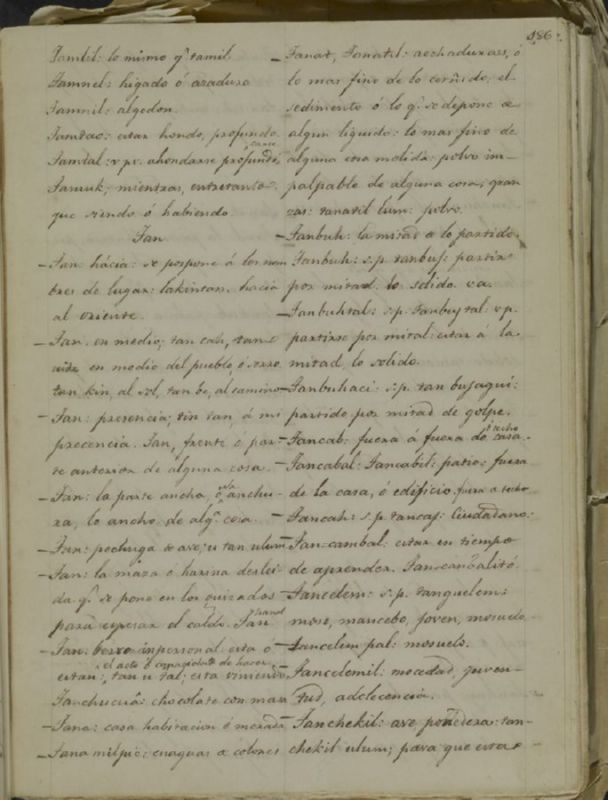 186.
Tamlil: lo mismo q.e tamil
Tamnel: higado ó asadura
Tamnil: algodon
Tamtac: estar hondo, profundo
Tamtal: v pr. ahondarse profundi
zarse
Tamuk: mientras, entretanto
que siendo ó habiendo
Tan
– Tan hácia: se pospone á los nom
bres de lugar: lakintan, hacia
al oriente.
– Tan. en medio; tan cah, tan
en medio del pueblo, ó
tan kin, al sol, tan be, al camino
– Tan: presencia; tin tan, á mi
precencia. Tan, frente ó par-
te anterior de alguna cosa.
– Tan: la parte ancha, ó la anchu-
ra, lo ancho de alg.a cosa.
– Tan: pechuga de ave; u tan ulum
– Tan: la masa ó harina deslei
da q.e se pone en los guizados
para espesar el caldo. Tan
– Tan. berro inpersonal esta ó
estan; tan u tal; esta viniendo
el acto ó de hacer
Tanchucuá: chocolate con mas
– Tana: casa habitacion ó morada
– Tana milpic: enaguas de colores
– Tanat, Tanatil: aechaduras, ó
lo mas fino de lo cernido, el
sedimento ó lo q.e se depone de
algun liquido: lo mas fino de
alguna cosa molida: polvo im-
palpable de alguna cosa, gran
zas: tanatil lum: polvo.
– Tanbuh: la mitad de lo partido.
Tanbuh: s.p. tanbuj: partir
por mitad lo solido. va.
– Tanbuhtal: s.p. tanbujtal: v p.
partirse por mitad: estar á la
mitad, lo solido.
– Tanbuhaci: s.p. tan bujaqui:
partido por mitad de golpe.
– Tancab: fuera á fuera de casa.
– Tancabal: Tancabil: patio: fuera
de la casa, ó edificio fuera
– Tancah: s.p. tancaj: Ciudadano:
– Tan cambal: estar en tiempo
de aprender. Tan
– Tancelem: s.p. tanquelem:
moso, mancebo, joven, mosuelo
– Tancelem pal: mosuelo.
– Tancelemil: mocedad, juven-
tud, adolecencia.
– Tanchekil: ave ponedera: tan-
chekil ulum; pava que esta